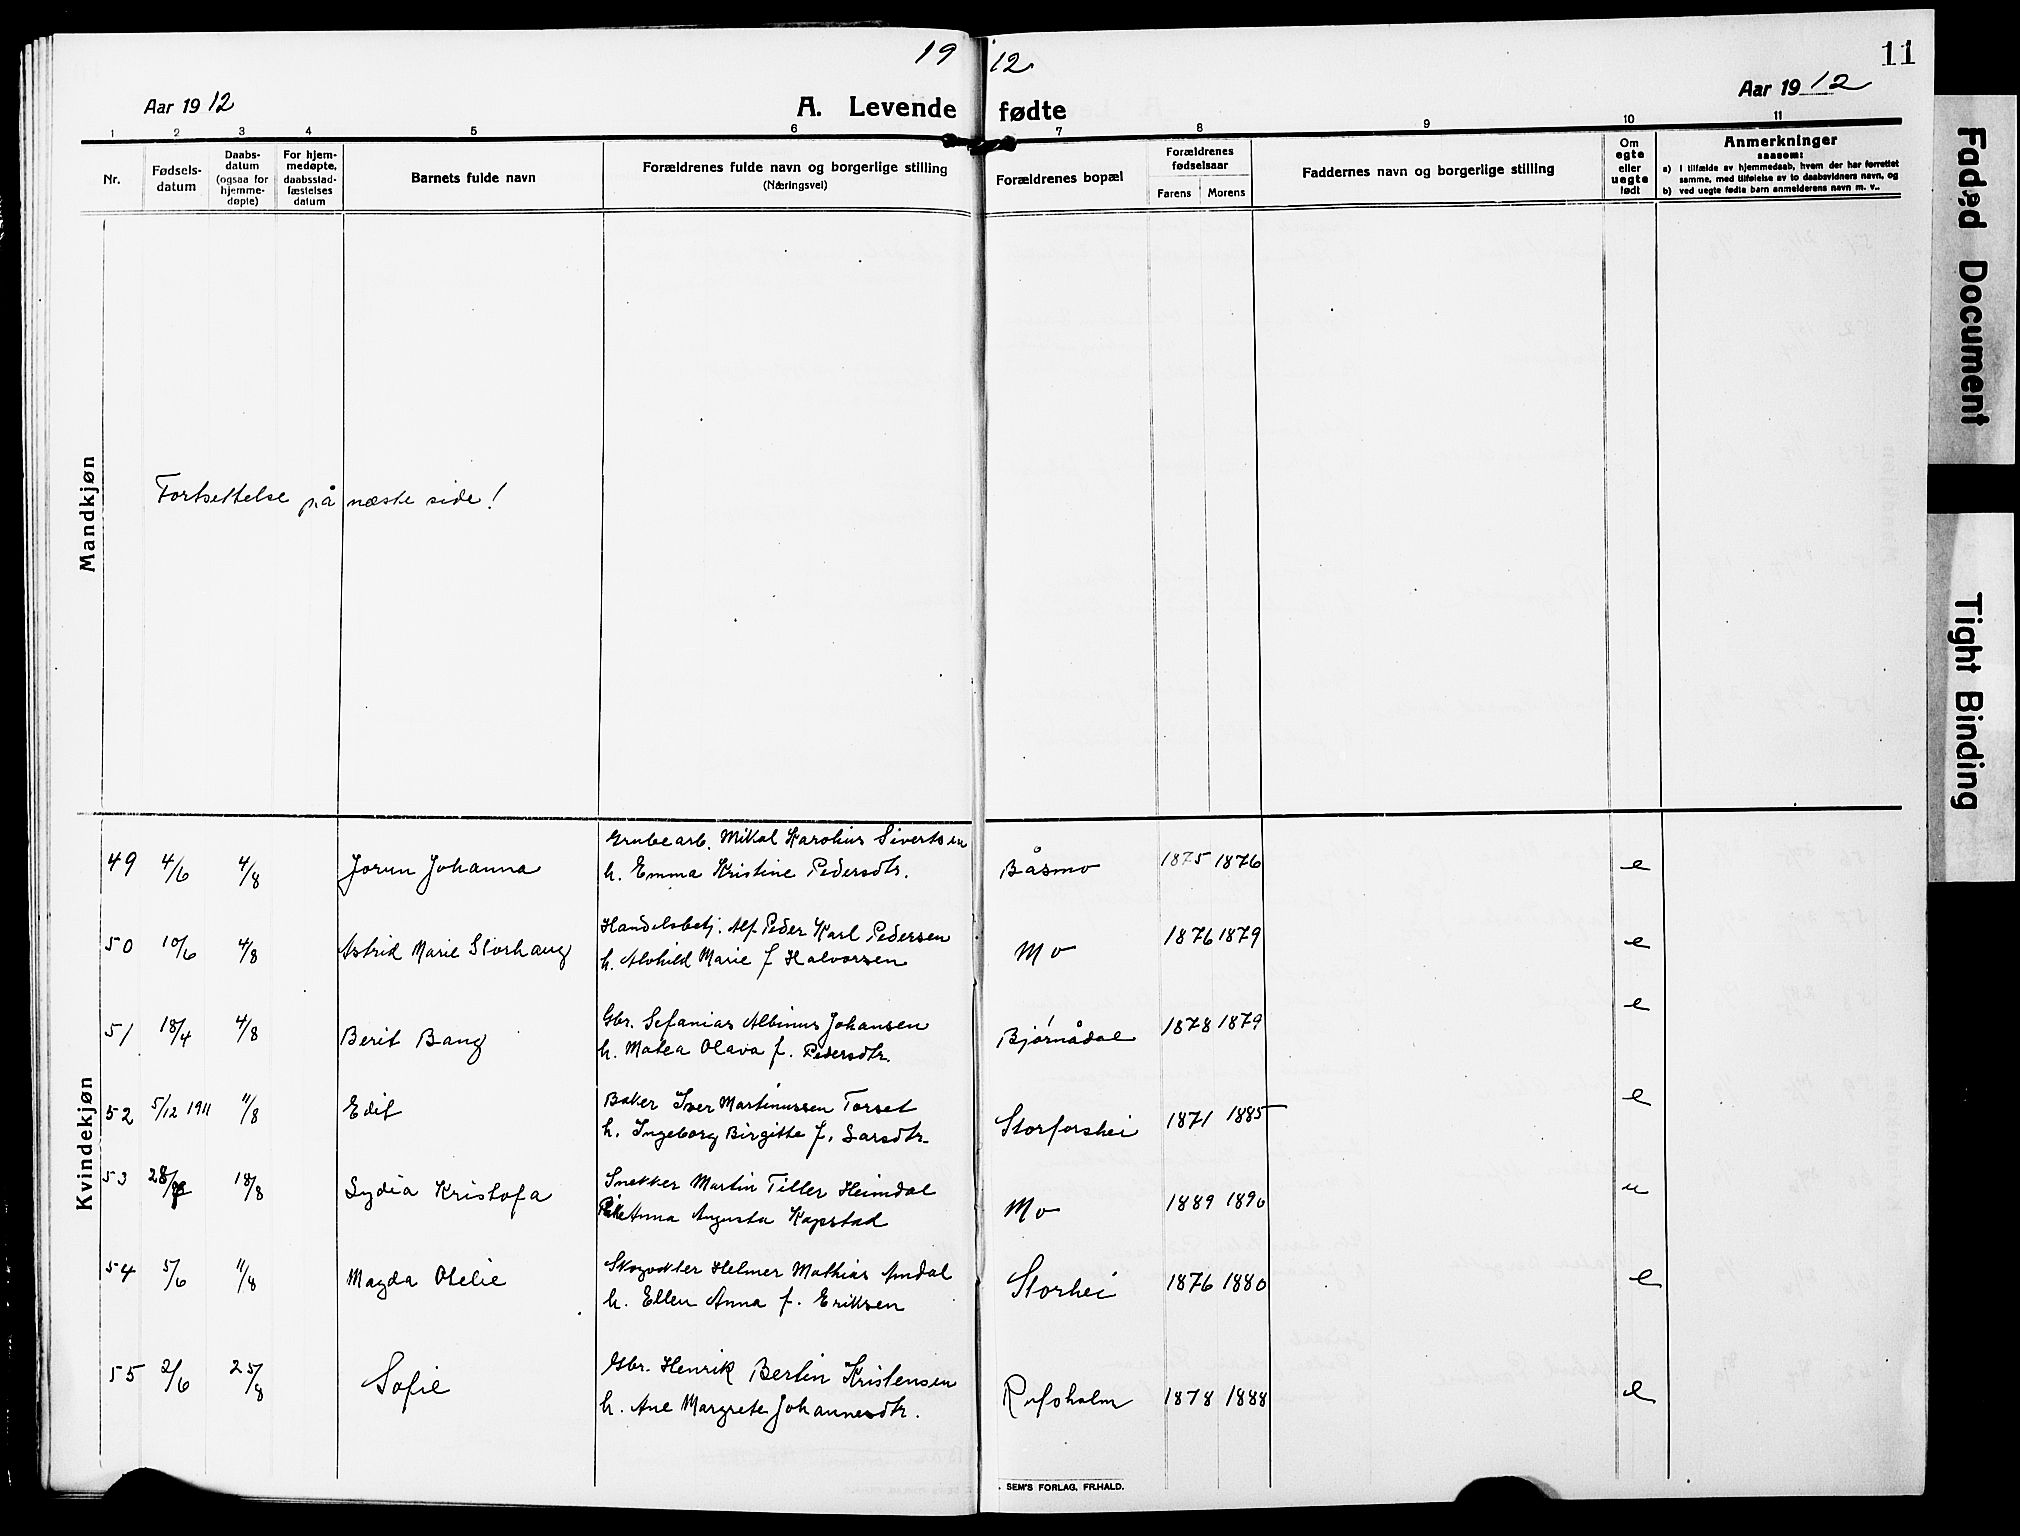 19 12
11
Aar 1912
A. Levende fødte
Aar 1912
1 2 3 4 5 6 7 8 9 10 11
Nr.
Fødsels-
datum
Daabs-
datum
(ogsaa for
hjemme-
døpte)
For hjem-
medøpte,
daabsstad-
fæstelses
datum
Barnets fulde navn
Forældrenes fulde navn og borgerlige stilling
(Næringsvei)
Forældrenes bopæl
Forældrenes
fødselsaar
Farens Morens
Faddernes navn og borgerlige stilling
Om
egte
eller
uegte
født
Anmerkninger
saasom:
a) i tilfælde av hjemmedaab, hvem der har forrettet
samme, med tilføielse av to daabsvidners navn, og
b) ved uegte fødte barn anmelderens navn m. v..
Mandkjøn
Fortsettelse på næste side!
Kvindekjøn
49 4/6 4/8 Jorun Johanna Grubearb. Mikal Karolius Sivertsen
h. Emma Kristine Pedersdtr. Båsmo 1875 1876 e
50 10/6 4/8 Astrid Marie Storhaug Handelsbetj. Alf Peder Karl Pedersen
h. Alvhild Marie f Halvorsen Mo 1876 1879 e
51 18/4 4/8 Berit Bang Gbr. Sefanias Albinus Johansen
h. Matea Olava f. Pedersdtr. Bjørnådal 1878 1879 e
52 5/12 1911 11/8 Edit Baker Iver Martinussen Forset
h. Ingeborg Birgitte f. Larsdtr. Storforshei 1871 1885 e
53 28/ 18/8 Lydia Kristofa Snekker Martin Tiller Heimdal
Pike Anna Augusta Kapstad Mo 1889 1890 u
54 5/6 11/8 Magda Otelie Skogvokter Helmer Mathias Amdal
h. Ellen Anna f. Eriksen Storhei 1876 1880 e
55 2/6 25/8 Sofie Gbr. Henrik Bertin Kristensen
h. Ane Margrete Johannesdtr. Rufsholm 1878 1888 e
SEM'S FORLAG, FR.HALD.
Faded Document
Tight Binding